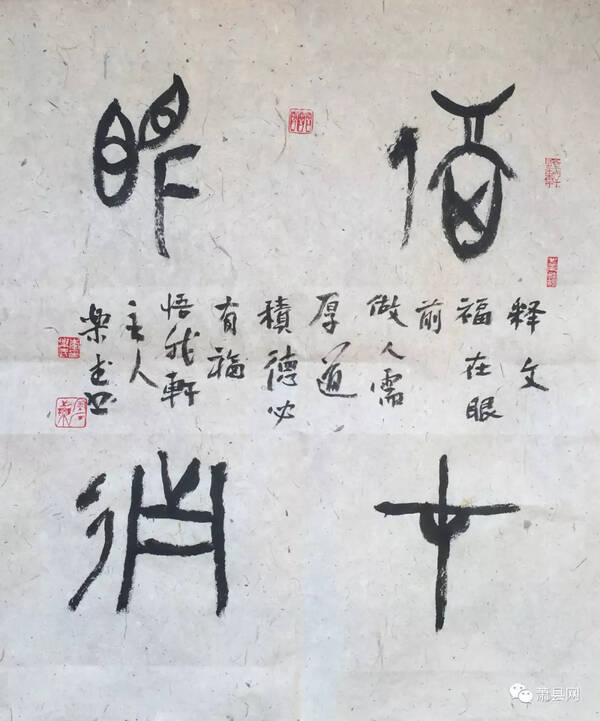 福在
眼前
释文
福在眼
前
做人需
厚道
積德必
有福
悟我軒
主人
樂志书
萧县网